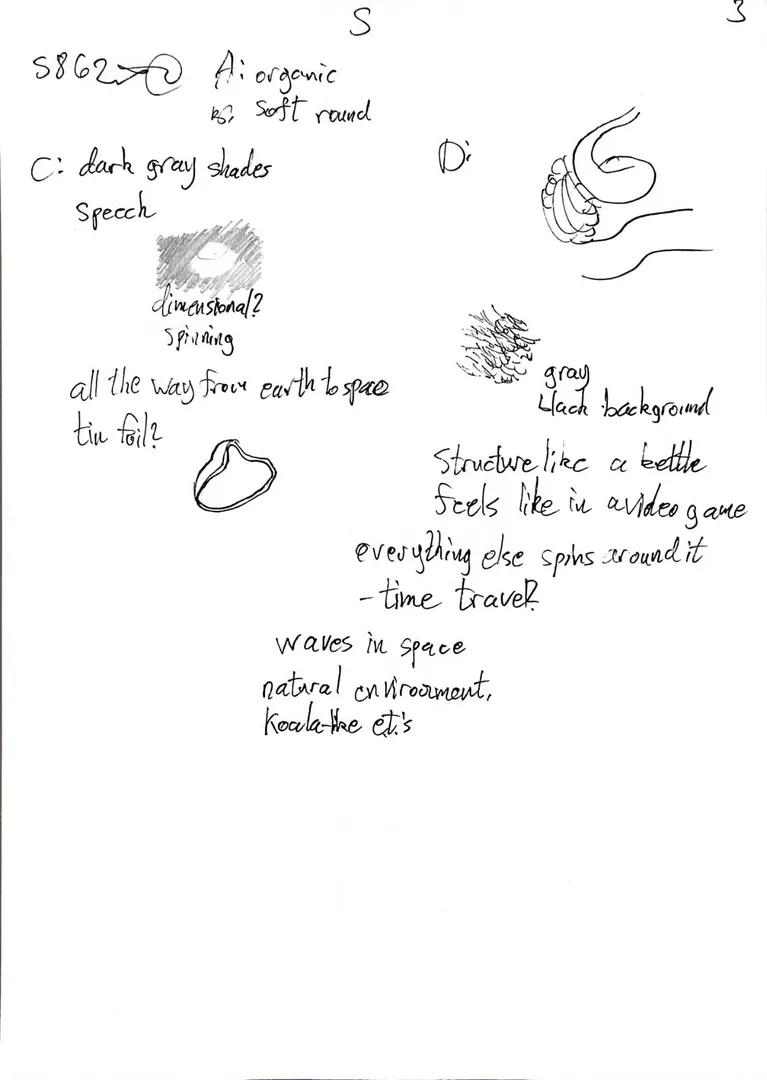 S
3
S862
A: organic
B: Soft round
C: dark gray shades
Speech
dimensional?
Spinning
all the way from earth to space
tin foil?
D:
gray
black background
Structure like a kettle
feels like in a video game
everything else spins around it
- time travel?
waves in space
natural environment,
Koala-like et.'s